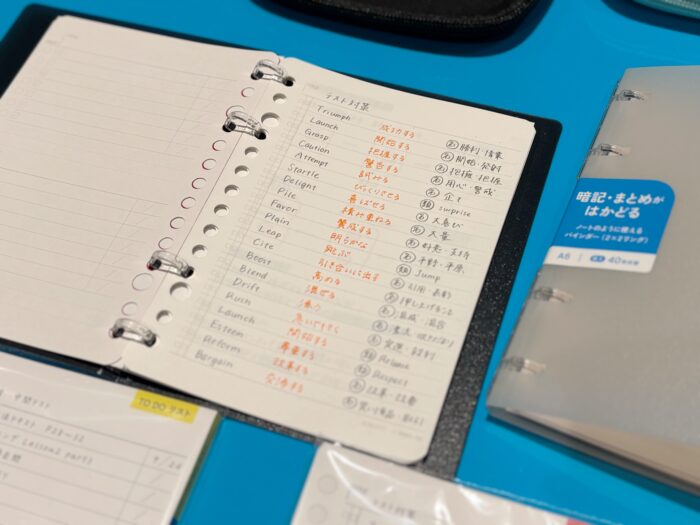 テスト対策
Triumph 成功する 名 勝利・
Launch 開始する 名 開始・発射
Grasp 把握する 名 把握・把握
Caution 警告する 名 用心・警戒
Attempt 試みる 名 企て
Startle びっくりさせる 類 surprise
Delight 喜ばせる 名 大喜び
Pile 積み重ねる 名 大量
Favor 賛成する 名 好意・支持
Plain 明らかな 名 平野・平原
Leap 跳ぶ 類 Jump
Cite 引き合いに出す 名 引用・表彰
Boost 高める 名 押し上げること
Blend 混ぜる 名 混成・混合
Drift 漂う 名
Rush 急いで行く 名 突進・殺到
Launch 開始する 類 Release
Esteem 尊重する 類 Respect
Reform 改革する 名 改革・改善
Bargain 交渉する 名 買い得品・
暗記・まとめが
はかどる
ノートのように使える
バインダー(2×2リング)
A6
40枚収容
TO DO リスト
中間テスト
テスト P28〜32
Lesson2 part1
テスト対策